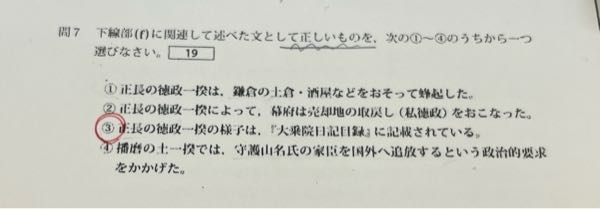 問7　下線部(f)に関連して述べた文として正しいものを、次の①～④のうちから一つ
選びなさい。 19
① 正長の徳政一揆は、鎌倉の土倉・酒屋などをおそって蜂起した。
② 正長の徳政一揆によって、幕府は売却地の取戻し（私徳政）をおこなった。
③ 正長の徳政一揆の様子は、『大乗院日記目録』に記載されている。
④ 播磨の土一揆では、守護山名氏の家臣を国外へ追放するという政治的要求
をかかげた。